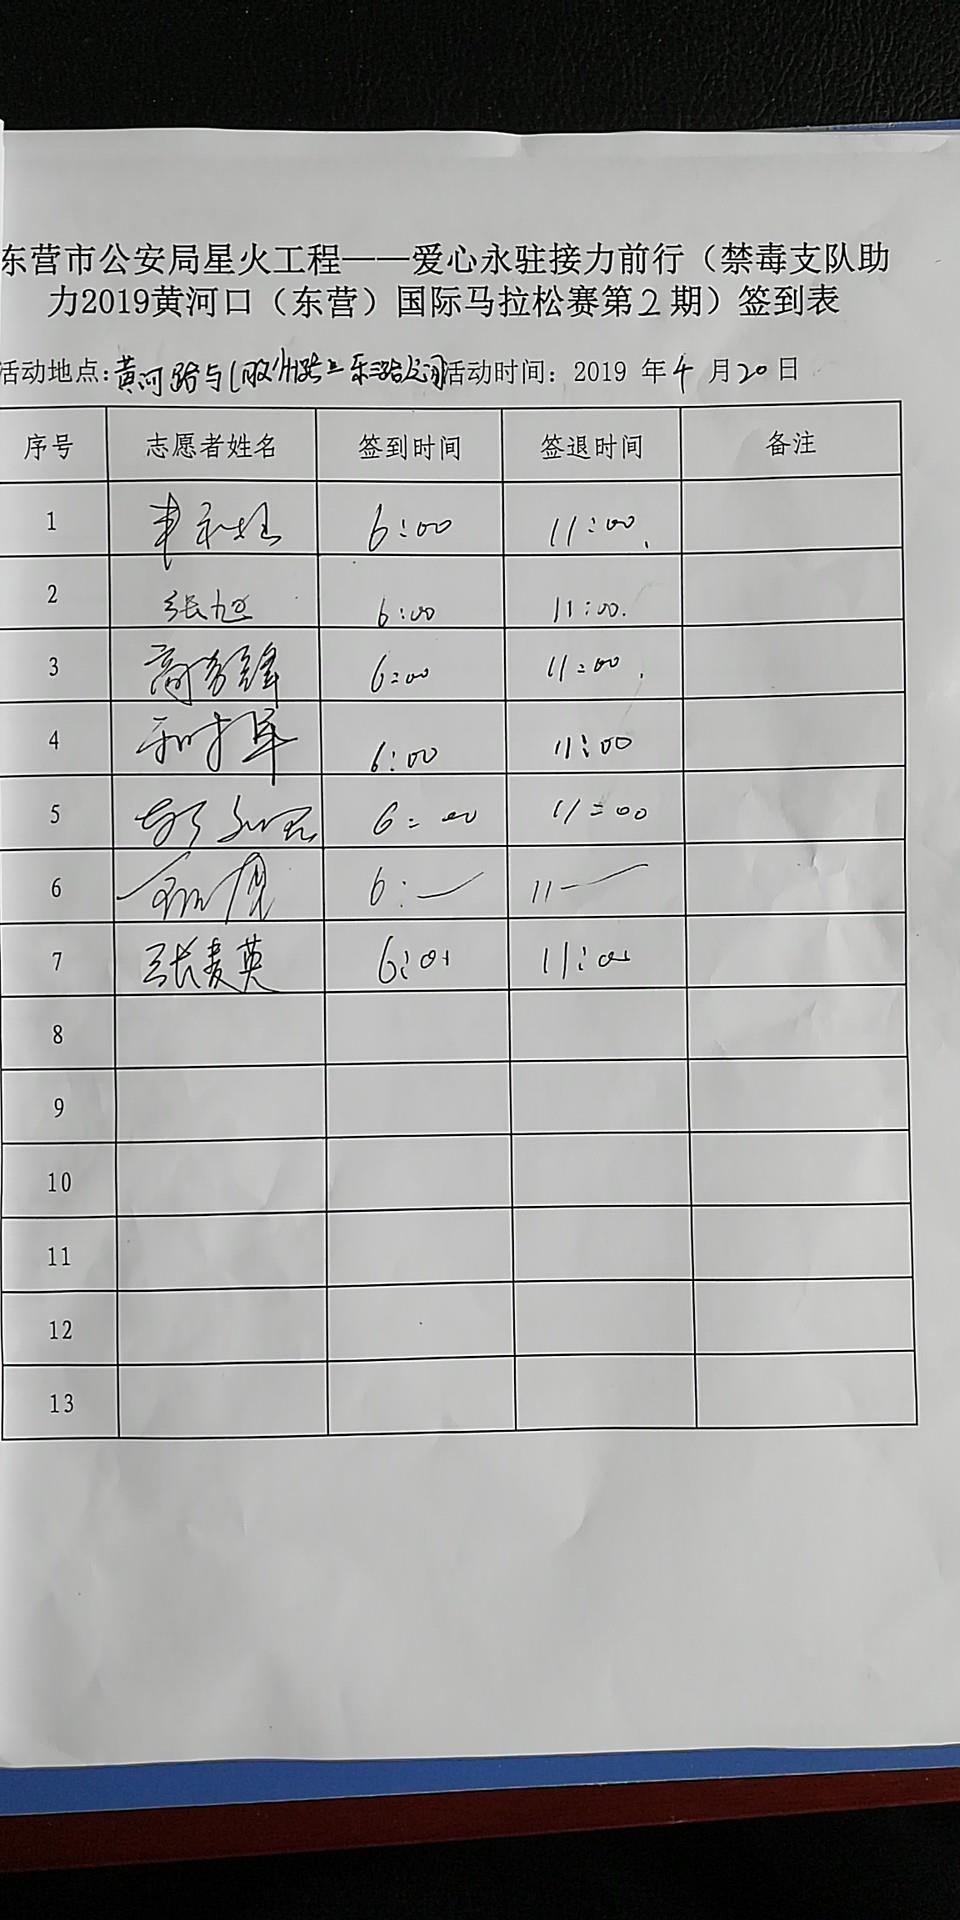 东营市公安局星火工程——爱心永驻接力前行（禁毒支队助
力2019黄河口（东营）国际马拉松赛第2期）签到表
活动地点：黄河路与 活动时间：2019 年 4 月 20 日
序号 志愿者姓名 签到时间 签退时间 备注
1 6:00 11:00
2 张旭 6:00 11:00.
3 6:00 11:00
4 6:00 11:00
5 6:00 11:00
6 6:— 11—
7 张麦英 6:01 11:01
8
9
10
11
12
13